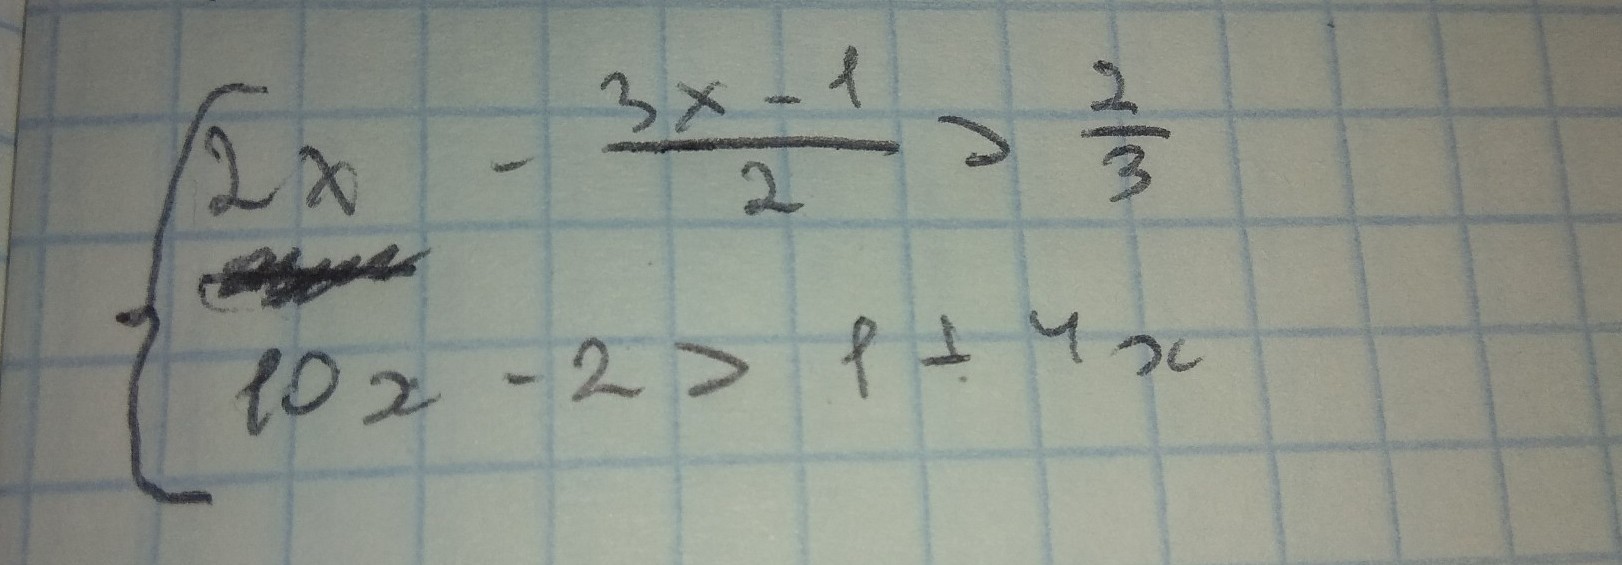 2x - \frac{3x-1}{2} > \frac{2}{3}
10x - 2 > 1 ± 4x